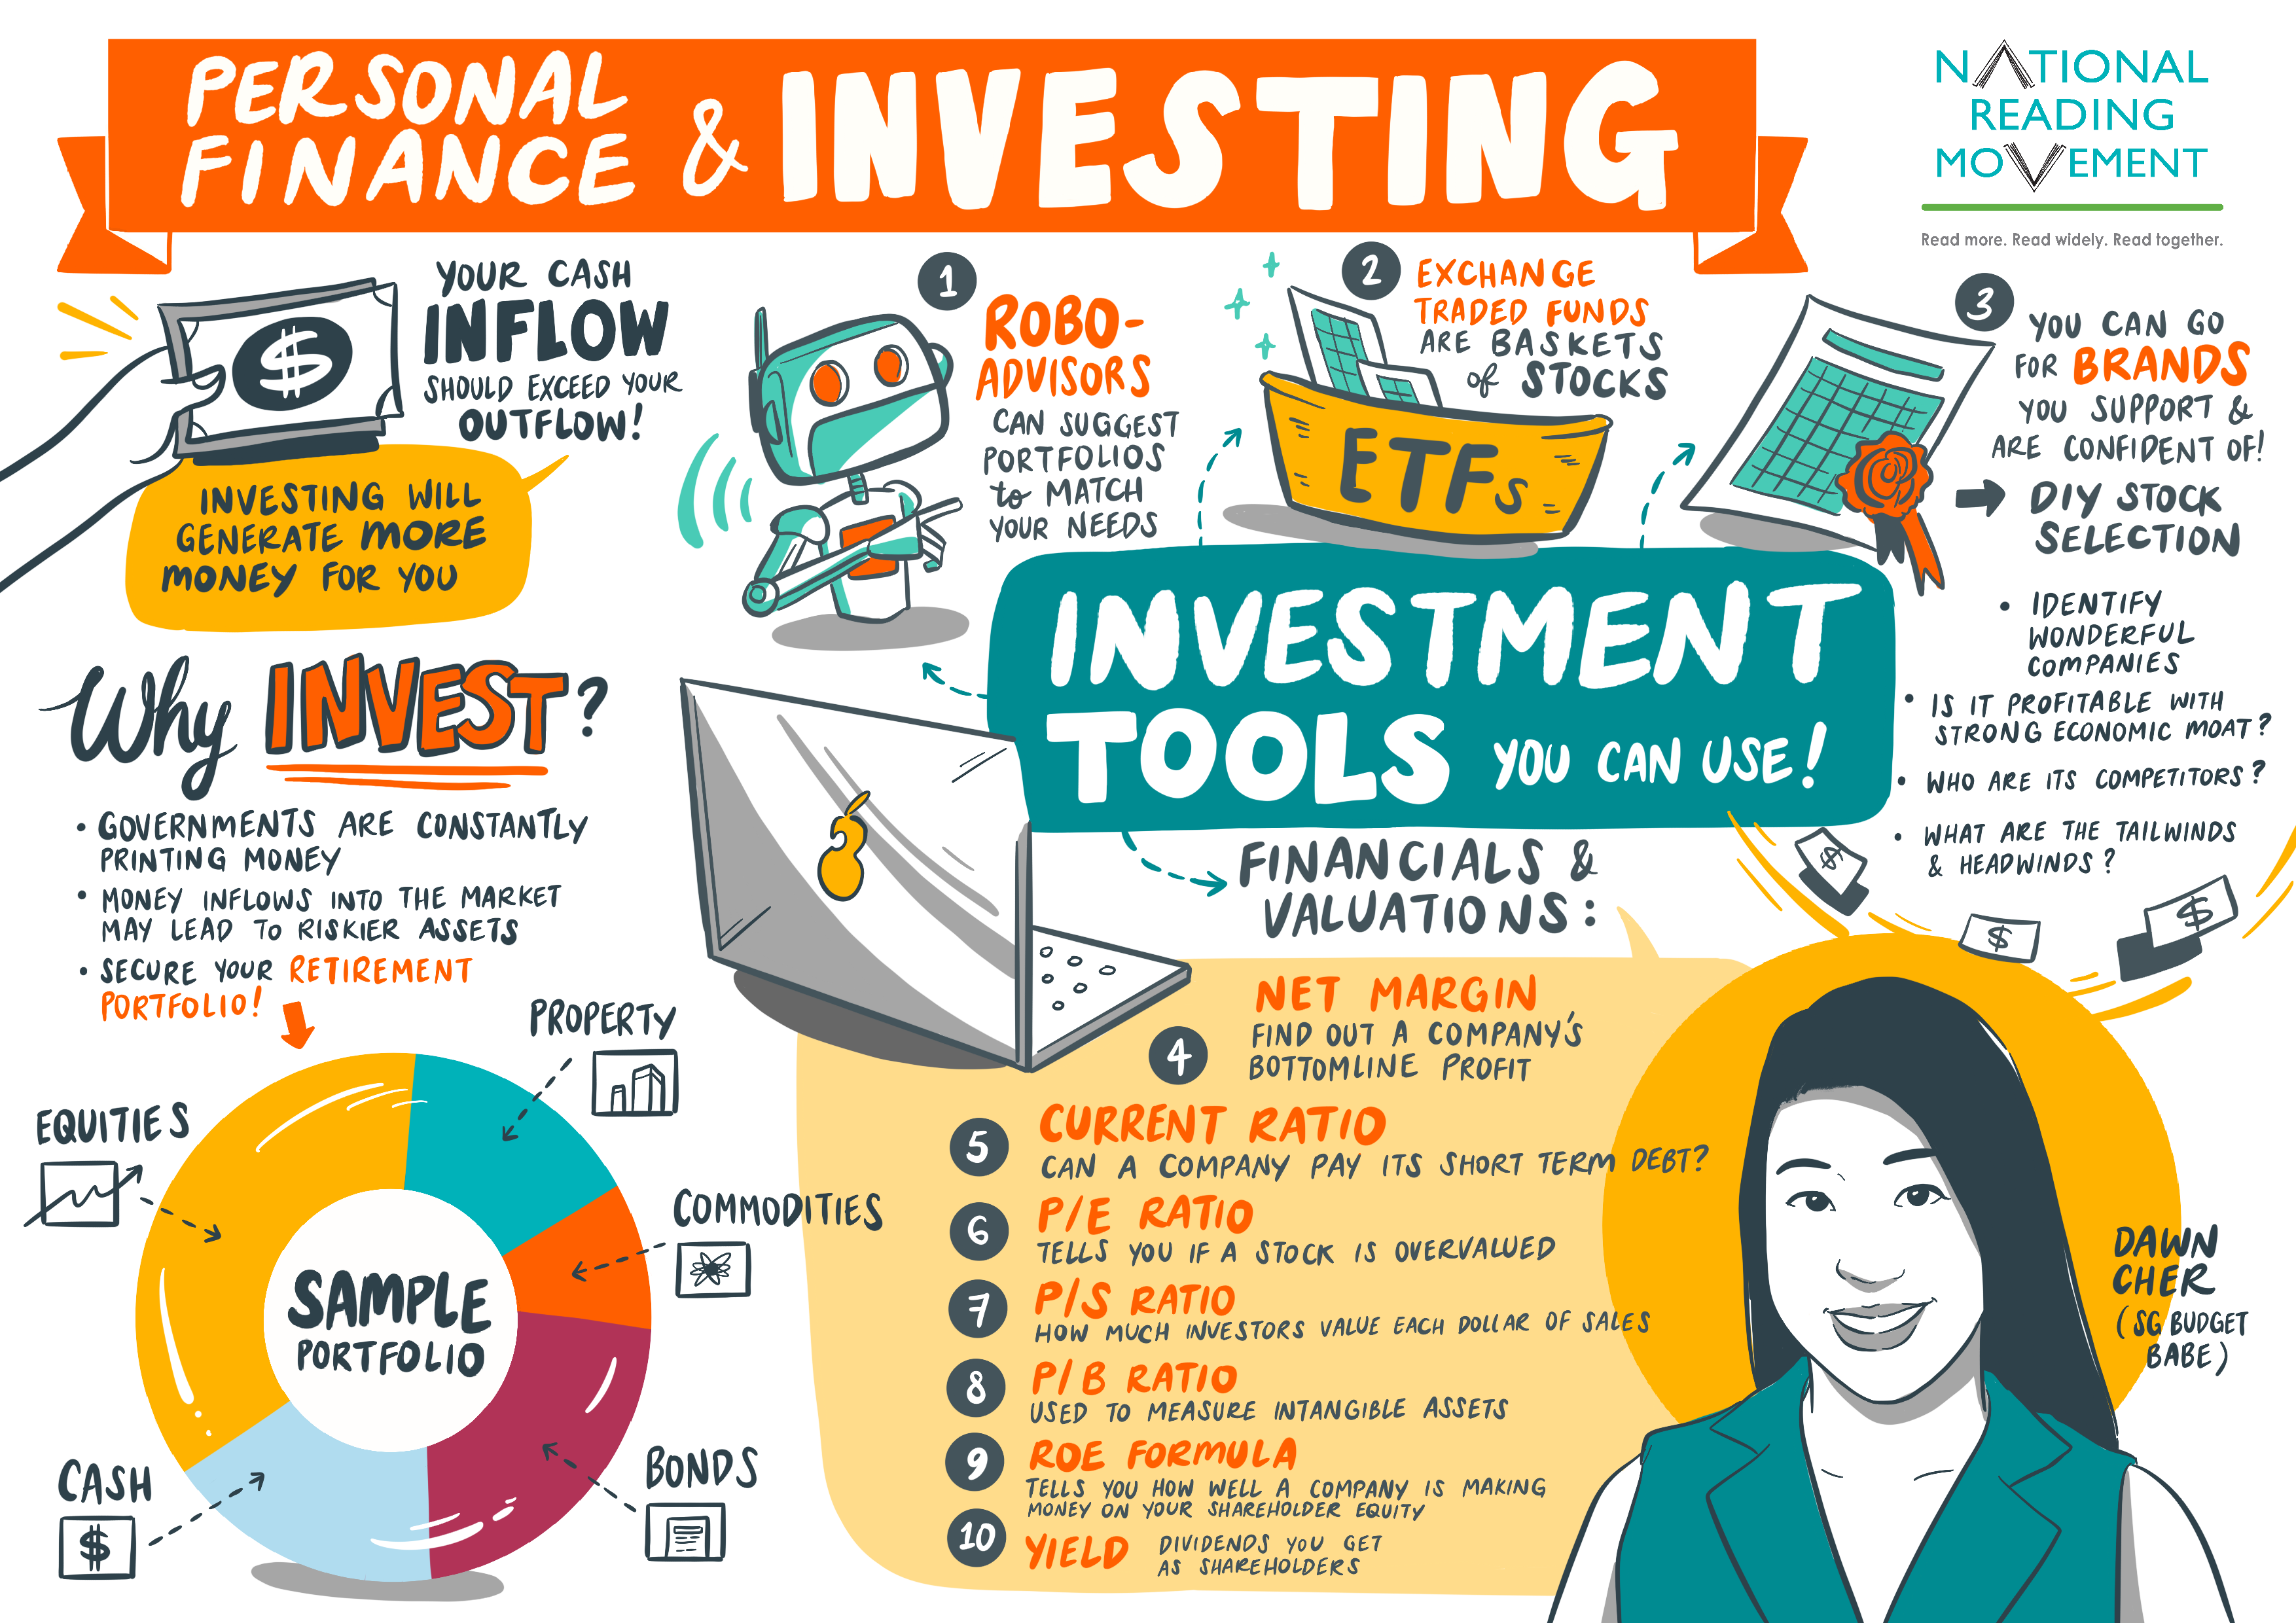 PERSONAL
FINANCE & INVESTING
NATIONAL
READING
MOVEMENT
Read more. Read widely. Read together.
YOUR CASH
INFLOW
SHOULD EXCEED YOUR
OUTFLOW!
$
INVESTING WILL
GENERATE MORE
MONEY FOR YOU
Why INVEST?
• GOVERNMENTS ARE CONSTANTLY
PRINTING MONEY
• MONEY INFLOWS INTO THE MARKET
MAY LEAD TO RISKIER ASSETS
• SECURE YOUR RETIREMENT
PORTFOLIO!
PROPERTY
EQUITIES
COMMODITIES
SAMPLE
PORTFOLIO
CASH
$
BONDS
1
ROBO-
ADVISORS
CAN SUGGEST
PORTFOLIOS
to MATCH
YOUR NEEDS
2
EXCHANGE
TRADED FUNDS
ARE BASKETS
of STOCKS
ETFs
3
YOU CAN GO
FOR BRANDS
YOU SUPPORT &
ARE CONFIDENT OF!
DIY STOCK
SELECTION
• IDENTIFY
WONDERFUL
COMPANIES
• IS IT PROFITABLE WITH
STRONG ECONOMIC MOAT?
• WHO ARE ITS COMPETITORS?
• WHAT ARE THE TAILWINDS
& HEADWINDS?
INVESTMENT
TOOLS YOU CAN USE!
FINANCIALS &
VALUATIONS:
4
NET MARGIN
FIND OUT A COMPANY'S
BOTTOMLINE PROFIT
5
CURRENT RATIO
CAN A COMPANY PAY ITS SHORT TERM DEBT?
6
P/E RATIO
TELLS YOU IF A STOCK IS OVERVALUED
7
P/S RATIO
HOW MUCH INVESTORS VALUE EACH DOLLAR OF SALES
8
P/B RATIO
USED TO MEASURE INTANGIBLE ASSETS
9
ROE FORMULA
TELLS YOU HOW WELL A COMPANY IS MAKING
MONEY ON YOUR SHAREHOLDER EQUITY
10
YIELD
DIVIDENDS YOU GET
AS SHAREHOLDERS
$
$
$
DAWN
CHER
(SG BUDGET
BABE)